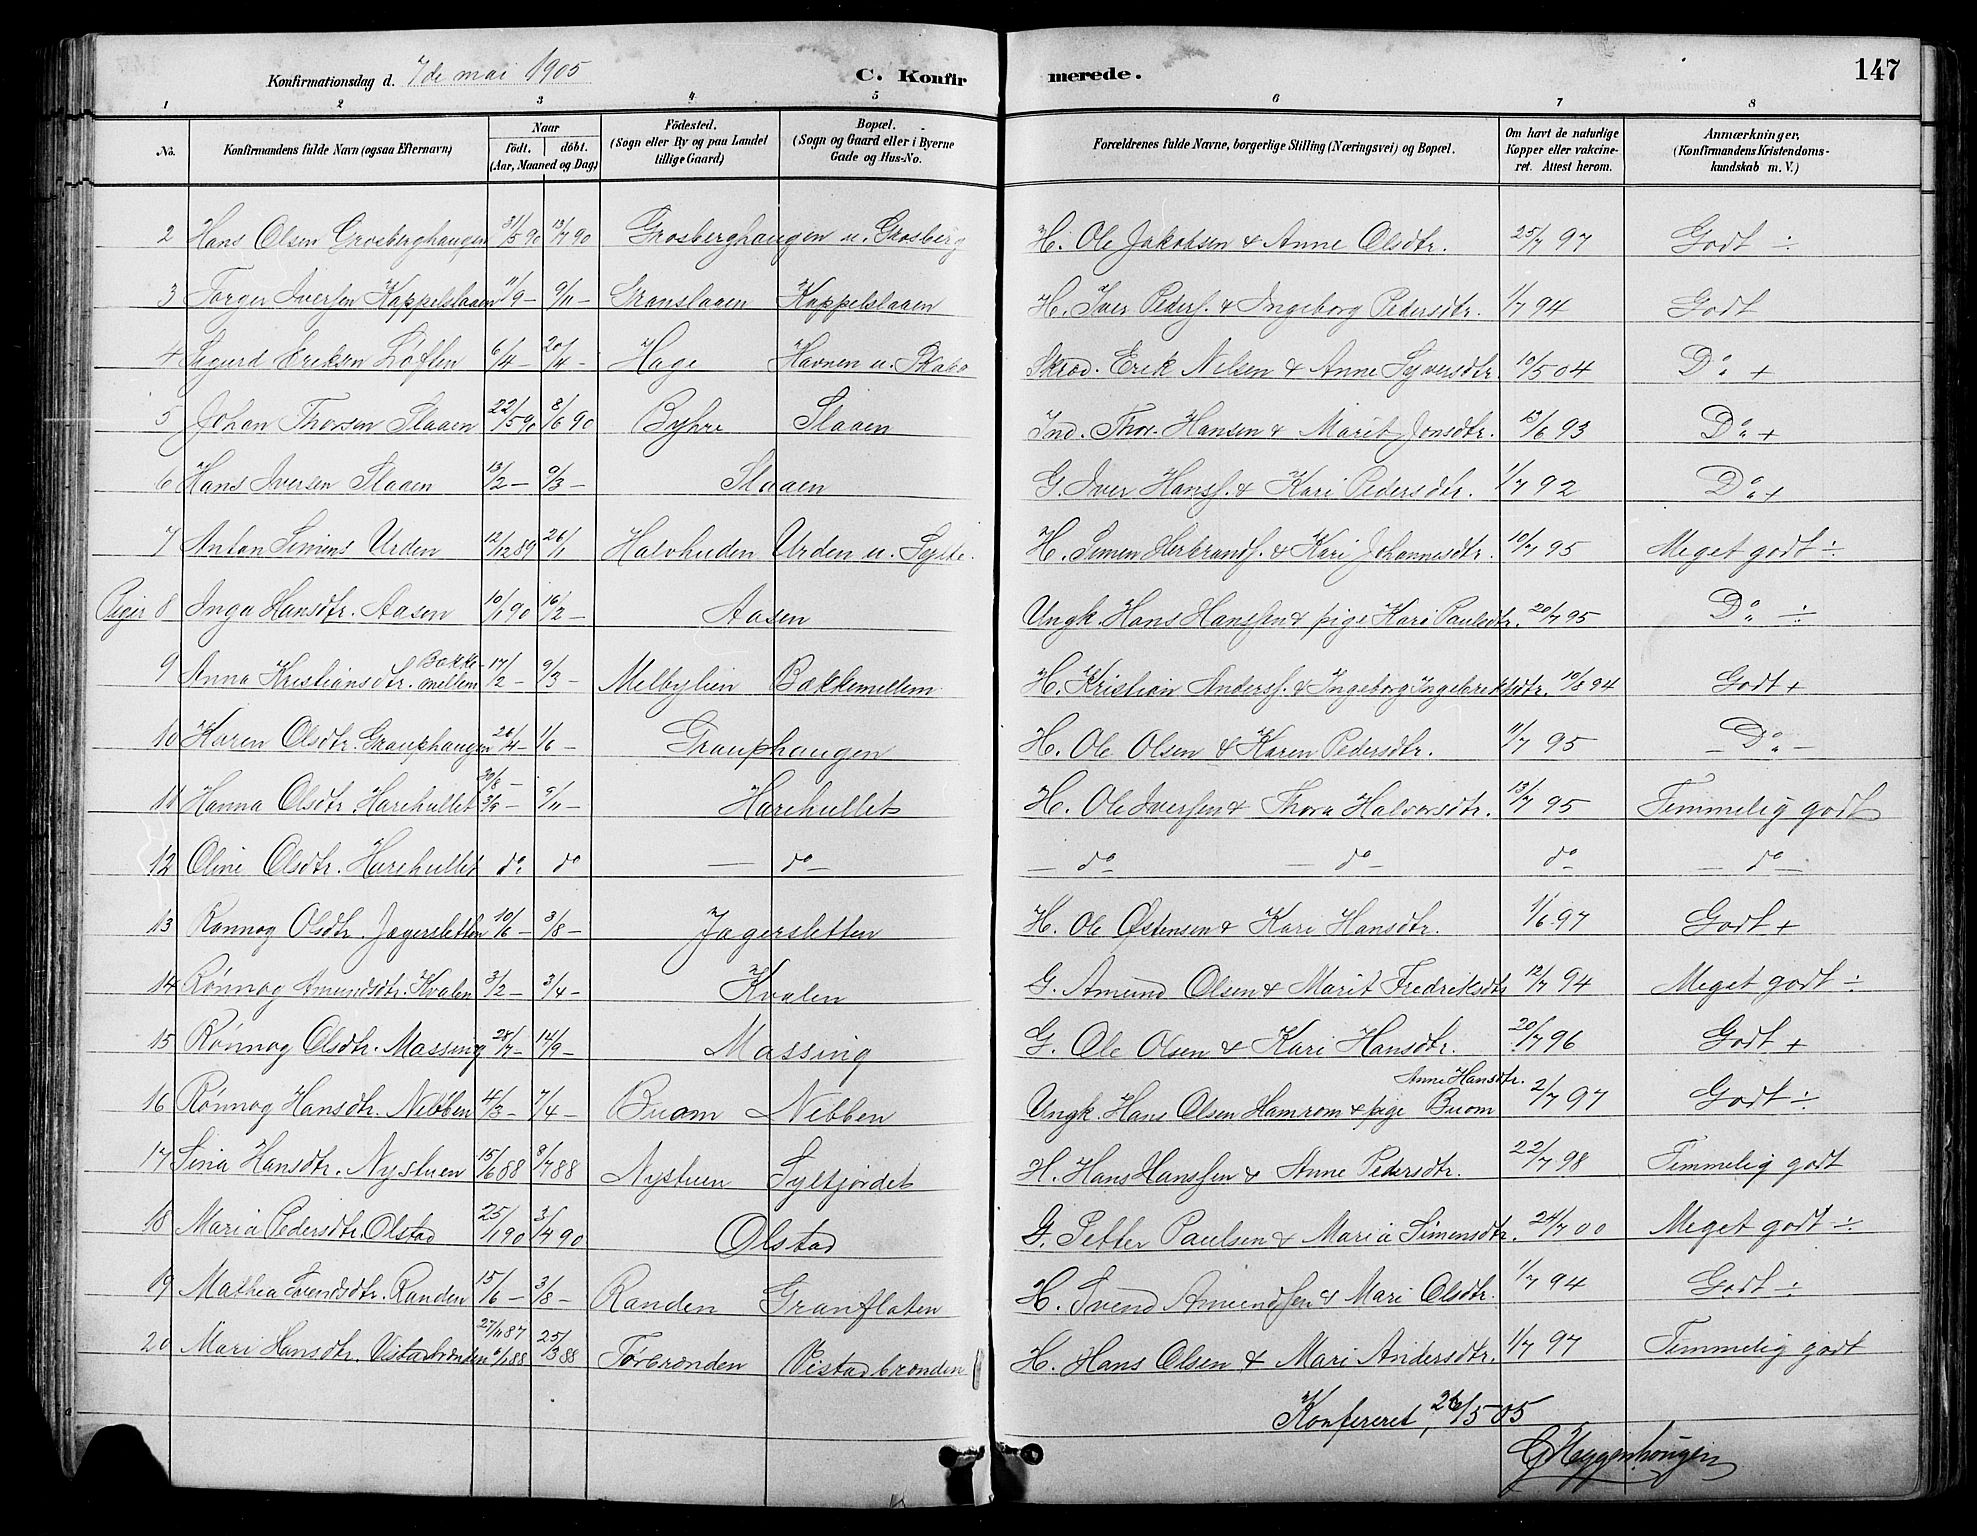 Konfirmationsdag d. 7de mai 1905 C. Konfirmerede. 147
1 2 3 4 5 6 7 8
No. Konfirmandens fulde Navn (ogsaa Efternavn) Naar Födt. döbt. (Aar, Maaned og Dag) Födested. (Sogn eller By og paa Landet tillige Gaard) Bopæl. (Sogn og Gaard eller i Byerne Gade og Hus-No. Forældrenes fulde Navne, borgerlige Stilling (Næringsvei) og Bopæl. Om havt de naturlige Kopper eller vakcineret. Attest herom. Anmærkninger, (Konfirmandens Kristendomskundskab m. V.)
2 Hans Olsen Grosberghaugen 31/5 90 13/7 90 Grosberghaugen u. Grosberg H. Ole Jakobsen & Anne Olsdtr. 25/7 97 Godt ÷
3 Torger Iversen Kappelslaaen 11/9 – 9/11 – Granslaaen Kappelslaaen H. Iver Peders. & Ingeborg Pedersdtr. 1/7 94 Godt
4 Sigurd Eriksen Loften 6/4 – 20/4 – Hage Havnen u. Skabo Skræd. Erik Nilsen & Anne Syversdtr. 10/5 04 Do +
5 Johan Thorsen Slaaen 22/5 90 8/6 90 Byhre Slaaen Ind. Thor Hansen & Marit Jonsdtr. 13/6 93 Do +
6 Hans Iversen Slaaen 13/2 – 9/3 – Slaaen G. Iver Hans. & Kari Pedersdtr. 1/7 92 Do +
7 Anton Simens Urden 12/12 89 26/1 Halvhuden Urden u. Sylte. H. Simen Herbrands. & Kari Johannesdtr. 10/7 95 Meget godt ÷
Piger 8 Inga Hansdtr. Aasen 10/1 90 16/2 – Aasen Ungk. Hans Hanssen & pige Kari Paulsdtr. 20/7 95 Do ÷
9 Anna Kristiansdtr. Bakkemellem 17/2 – 9/3 – Melbylien Bakkemellem H. Kristian Anders. & Ingeborg Ingebrektsdtr. 10/8 94 Godt +
10 Karen Olsdtr. Grauphaugen 26/4 – 1/6 – Grauphaugen H. Ole Olsen & Karen Pedersdtr. 11/7 95 – Do –
11 Hanna Olsdtr. Harehullet 30/8 – 3/9 – 9/11 – Harehullet H. Ole Iversen & Thora Halvorsdtr. 13/7 95 Temmelig godt
12 Oline Olsdtr. Harehullet do do – do – – do – do – do – do –
13 Rønnog Olsdtr. Jagersletten 10/6 – 3/8 – Jagersletten H. Ole Østensen & Kari Hansdtr. 1/6 97 Godt +
14 Rønnog Amundsdtr. Kvalen 3/2 – 3/4 – Kvalen G. Amund Olsen & Marit Fredriksdtr 12/7 94 Meget godt ÷
15 Rønnog Olsdtr. Massing 28/7 – 14/9 – Massing G. Ole Olsen & Kari Hansdtr. 20/7 96 Godt +
16 Rønnog Hansdtr. Nibben 4/3 – 7/4 – Buom Nibben Ungk. Hans Olsen Hamrom & pige Anne Hansdtr. Buom 2/7 97 Godt ÷
17 Sina Hansdtr. Nystuen 15/6 88 8/7 88 Nystuen Syltjordet H. Hans Hanssen & Anne Pedersdtr. 22/7 98 Temmelig godt
18 Maria Pedersdtr. Olstad 25/1 90 3/4 90 Olstad G. Petter Paulsen & Maria Simensdtr. 24/7 00 Meget godt ÷
19 Mathea Svendsdtr. Randen 15/6 – 3/8 – Randen Granflaten H. Svend Amundsen & Mari Olsdtr. 1/7 94 Godt ÷
20 Mari Hansdtr. Vistadbrenden 27/11 87 /1 88 25/3 88 Torbrenden Vistadbrenden H. Hans Olsen & Mari Andersdtr. 1/7 97 Temmelig godt
Konfereret, 26/5 05
G Heggenhougen